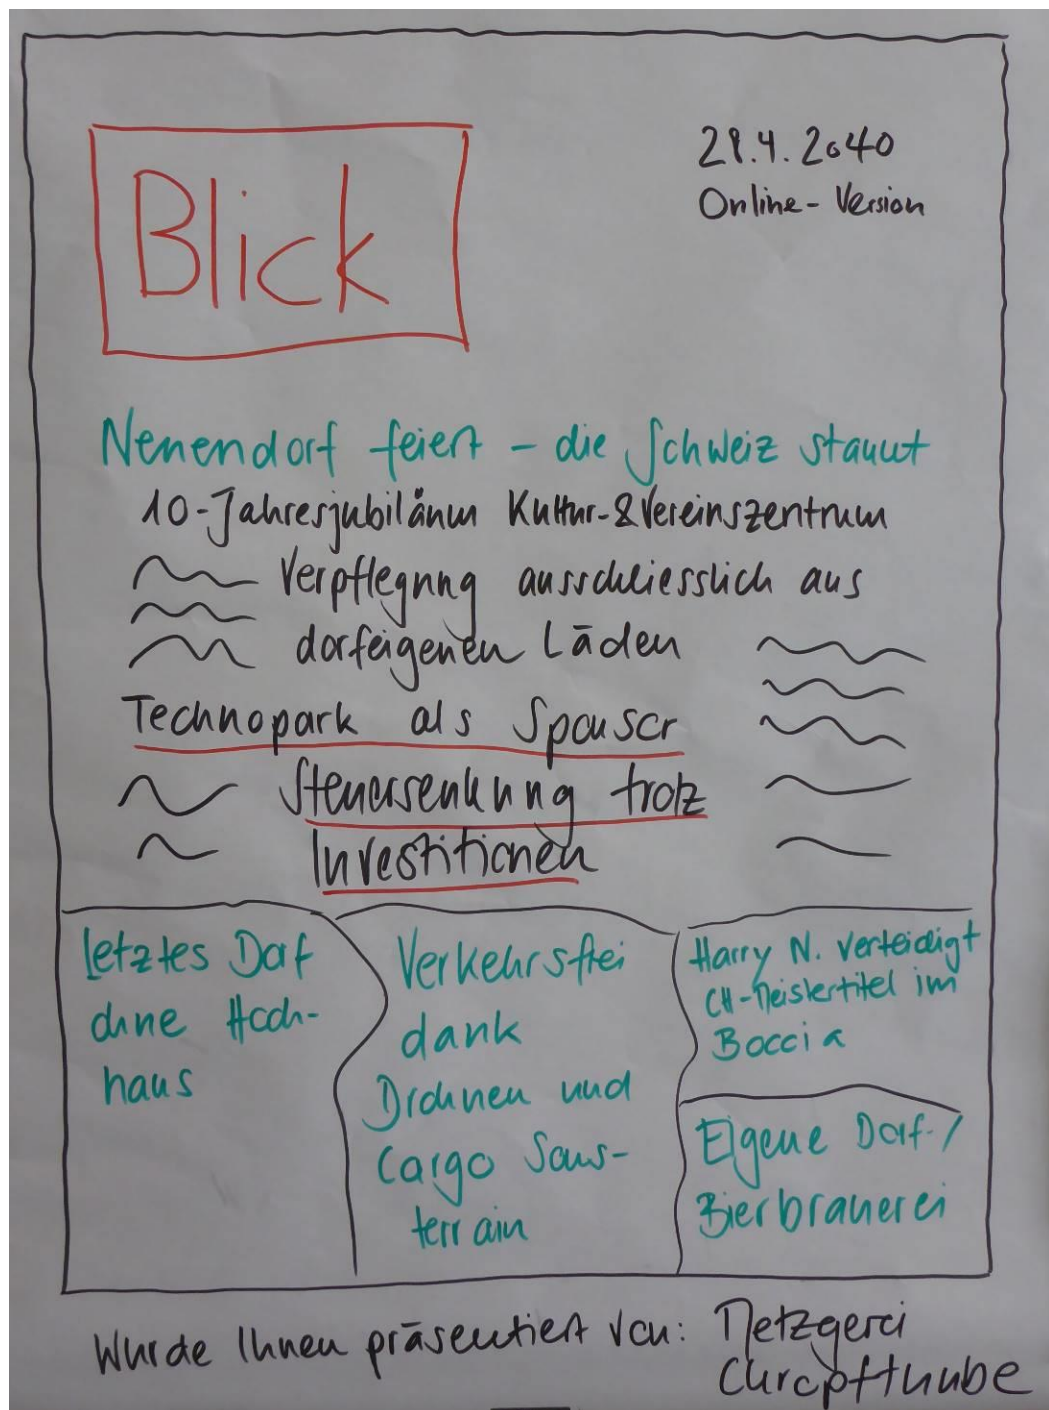 Blick
28.4.2040
Online-Version
Neuendorf feiert - die Schweiz staunt
10-Jahresjubiläum Kultur-&Vereinszentrum
Verpflegung ausschliesslich aus
dorfeigenen Läden
Technopark als Sponsor
Steuersenkung trotz
Investitionen
letztes Dorf
ohne Hoch-
haus
Verkehrsfrei
dank
Drohnen und
Cargo Sous-
terrain
Harry N. verteidigt
CH-Meistertitel im
Boccia
Eigene Dorf-/
Bierbrauerei
Wurde Ihnen präsentiert von: Metzgerei